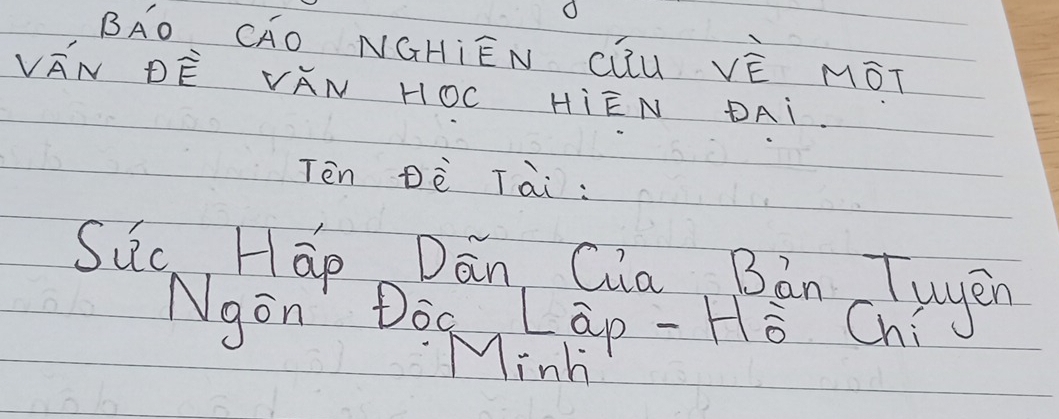 BÁO CÁO NGHIÊN CỨU VỀ MỘT
VẤN ĐỀ VĂN HỌC HIỆN ĐẠI.
Tên Đề Tài:
Sức Hấp Dẫn Của Bản Tuyên
Ngôn Độc Lập - Hồ Chí
Minh